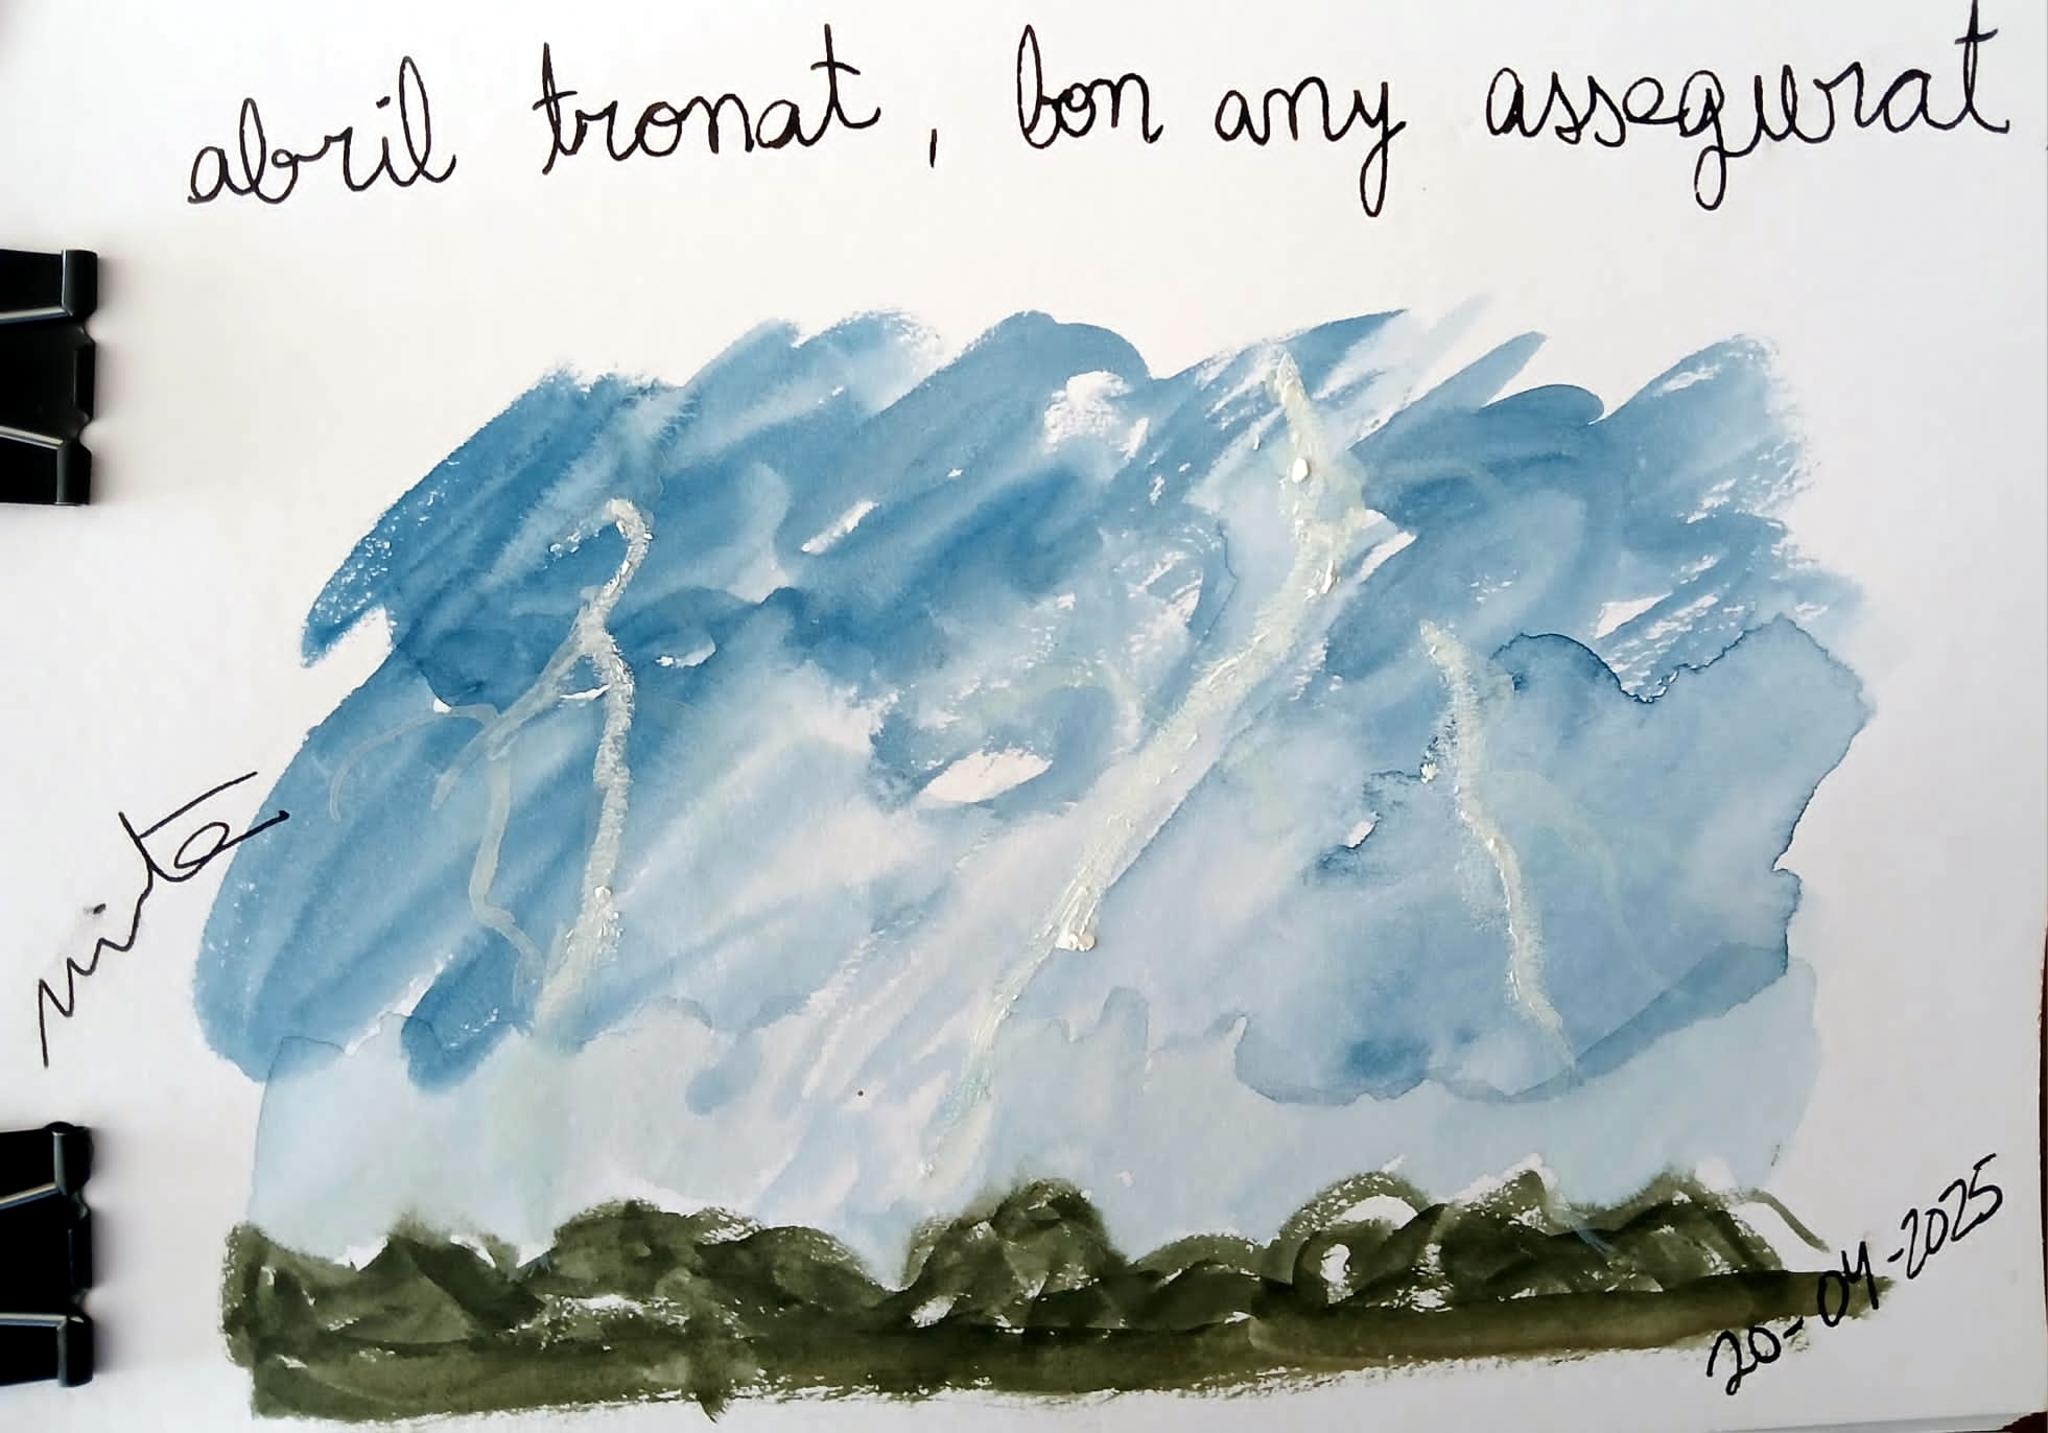 abril tronat, bon any assegurat
20-04-2025